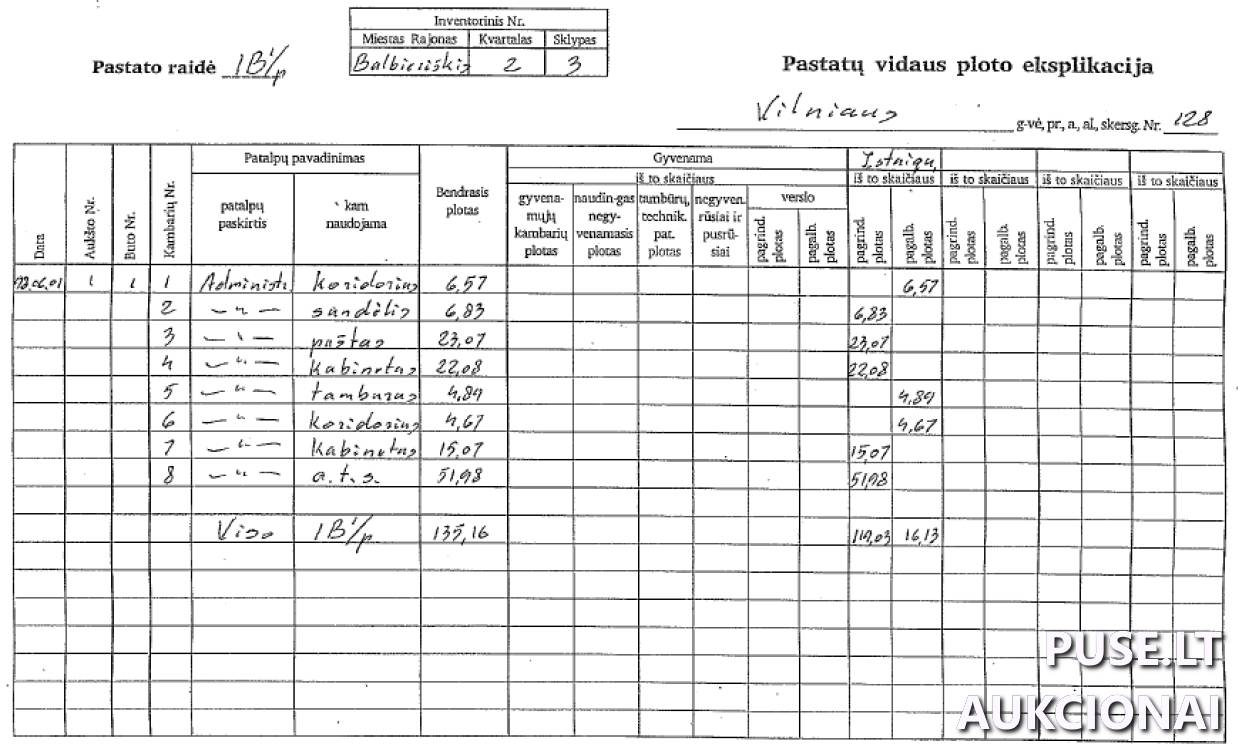 Inventorinis Nr.
Miestas Rajonas Kvartalas Sklypas
Balbieriškis 2 3
Pastato raidė 1B1/p
Pastatų vidaus ploto eksplikacija
Vilniaus g-vė, pr., a., al., skersg. Nr. 128
Data Aukšto Nr. Buto Nr. Kambarių Nr. Patalpų pavadinimas Bendrasis plotas Gyvenama Įstaigų
iš to skaičiaus iš to skaičiaus iš to skaičiaus iš to skaičiaus iš to skaičiaus
patalpų paskirtis kam naudojama gyvena-mųjų kambarių plotas naudin-gas negy-venamasis plotas tambūrų, technik. pat. plotas negyven. rūsiai ir pusrū-siai verslo
pagrind. plotas pagalb. plotas pagrind. plotas pagalb. plotas pagrind. plotas pagalb. plotas pagrind. plotas pagalb. plotas pagrind. plotas pagalb. plotas
1 1 1 Administr. koridorius 6,57 6,57
2 –"– sandėlis 6,83 6,83
3 –"– paštas 23,07 23,07
4 –"– kabinetas 22,08 22,08
5 –"– tamburas 4,89 4,89
6 –"– koridorius 4,67 4,67
7 –"– kabinetas 15,07 15,07
8 –"– a.t.s. 51,98 51,98
Viso 1B1/p 135,16 119,03 16,13
PUSE.LT
AUKCIONAI